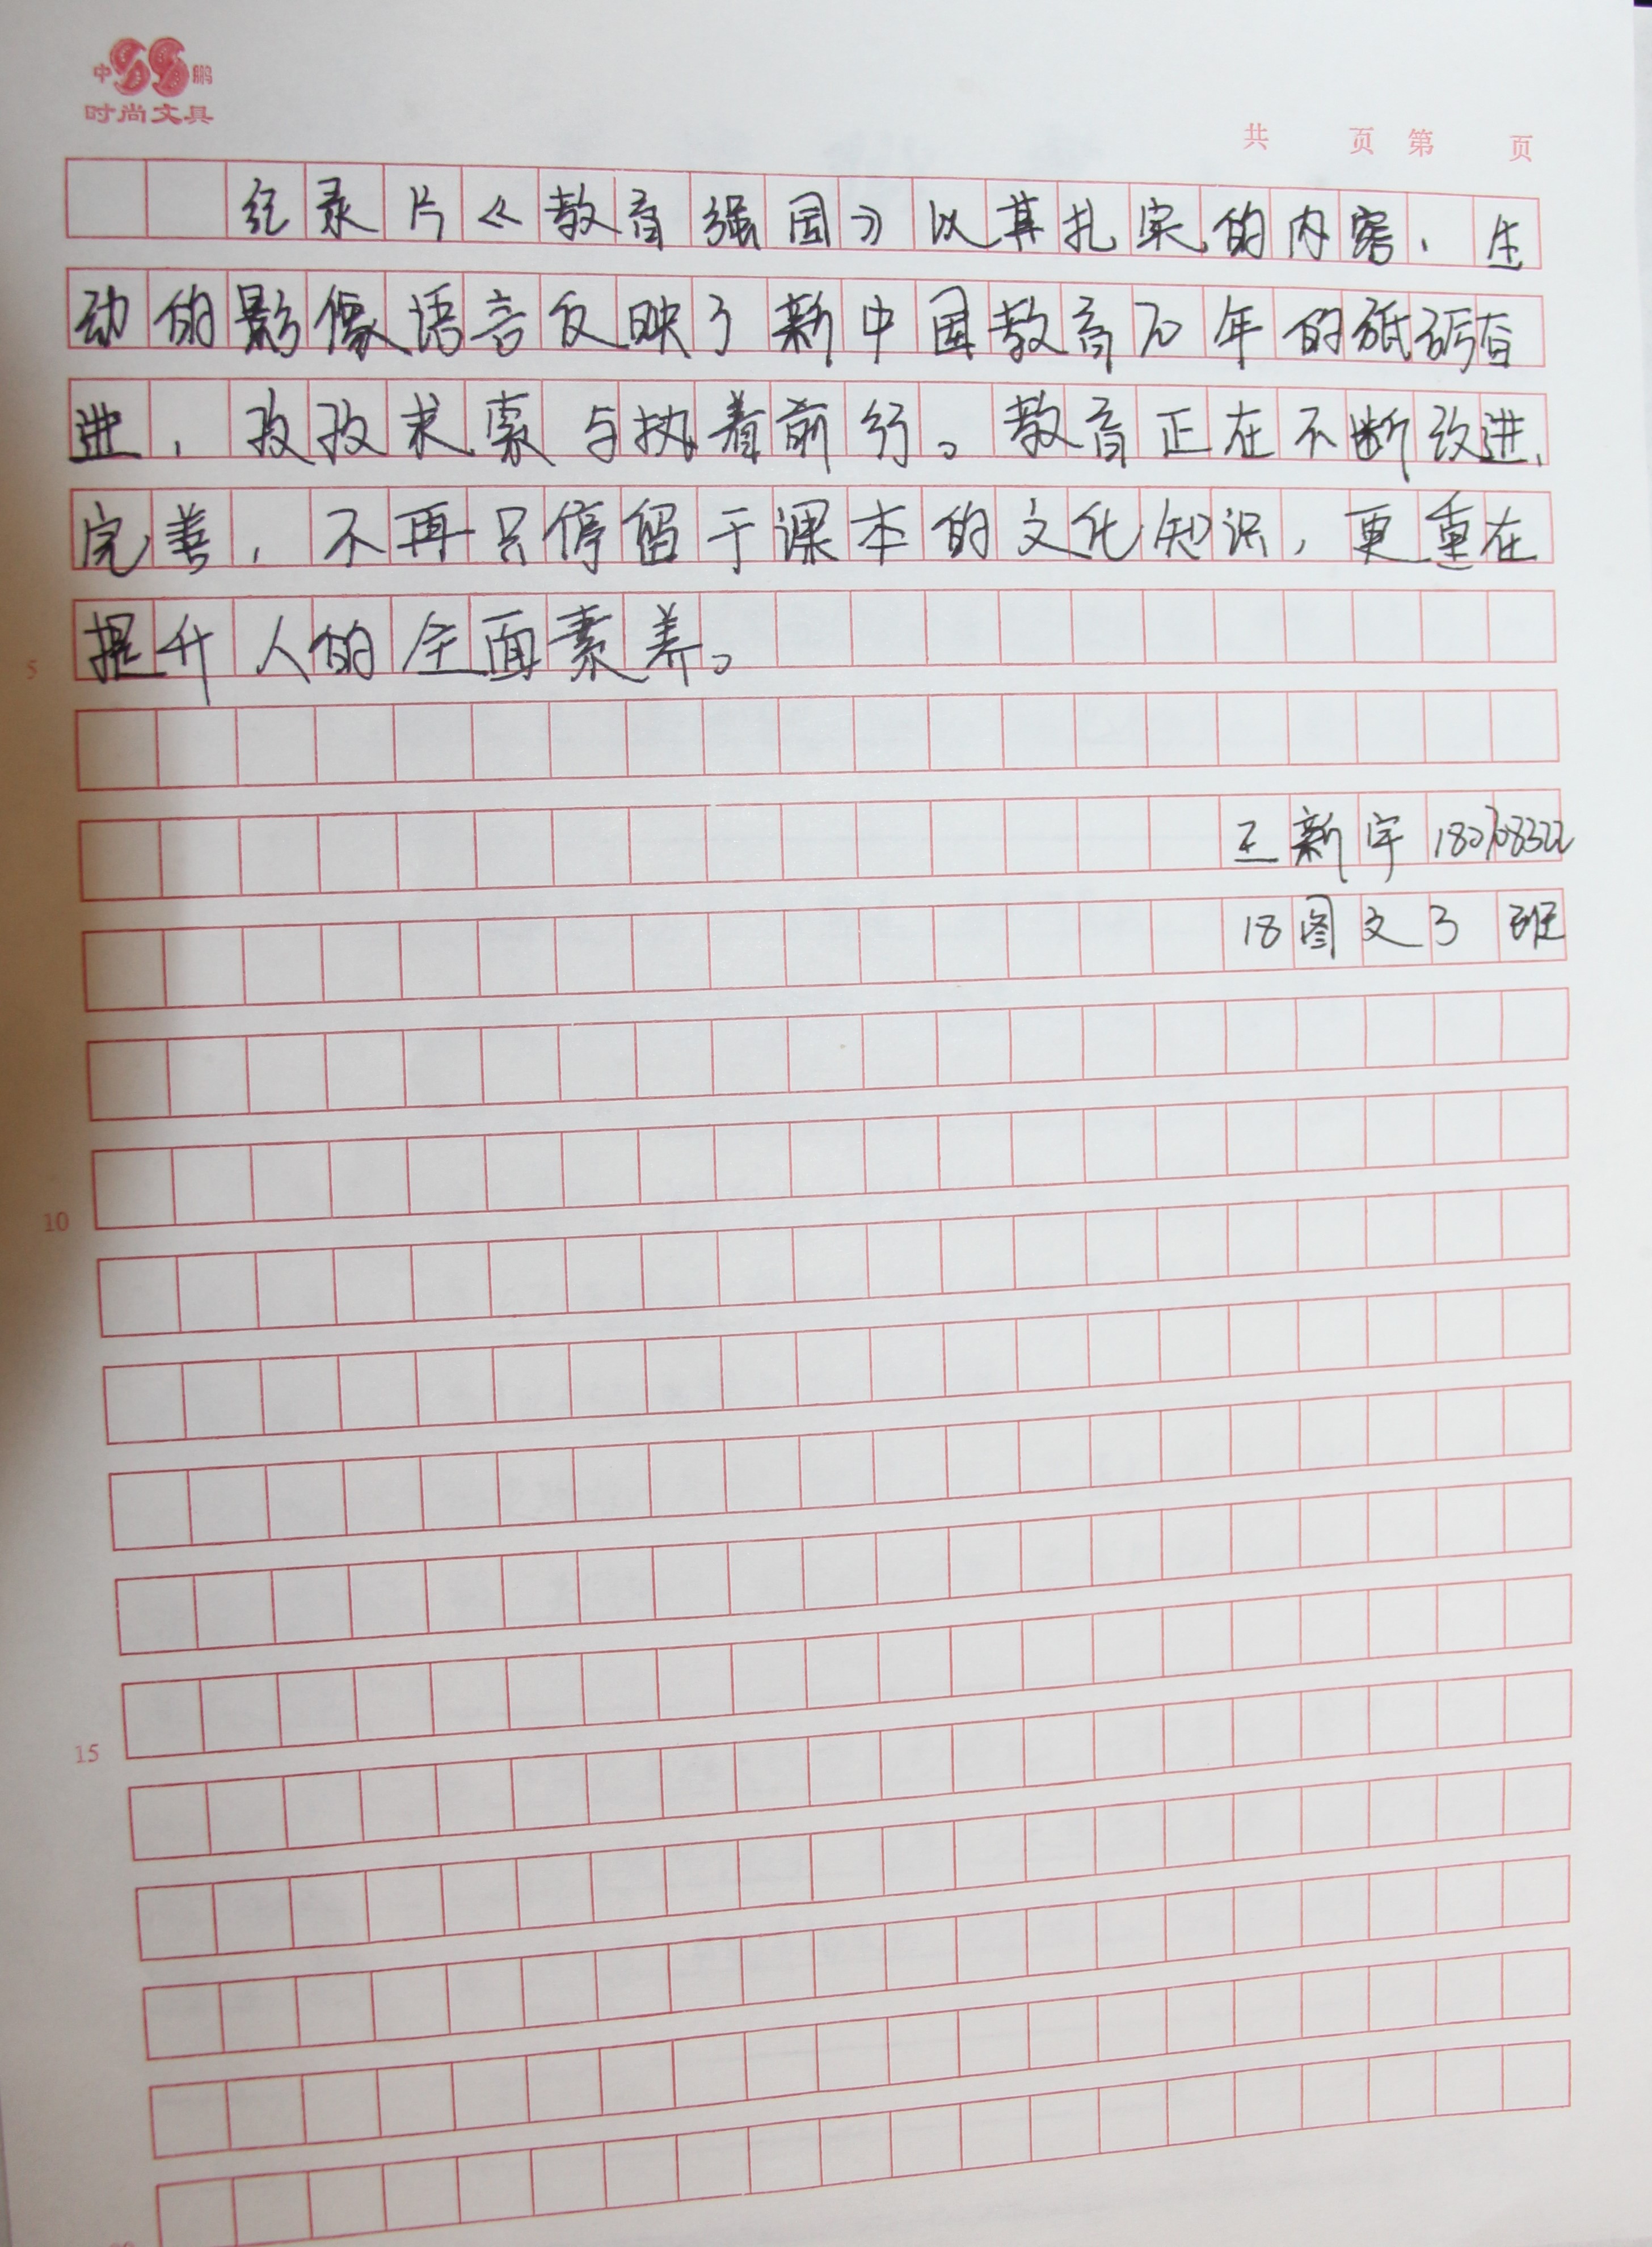 中鹏
时尚文具
共 页 第 页
纪录片《教育强国》以其扎实的内容、生
动的影像语言反映了新中国教育70年的砥砺奋
进，孜孜求索与执着前行。教育正在不断改进、
完善，不再只停留于课本的文化知识，更重在
提升人的全面素养。
5
王新宇
18图文3班
10
15